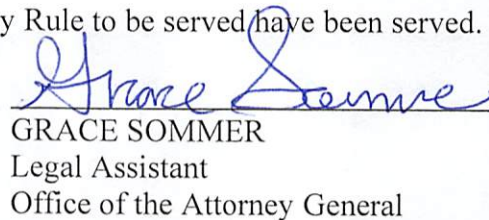 y Rule to be served have been served.
Grace Sommer
GRACE SOMMER
Legal Assistant
Office of the Attorney General